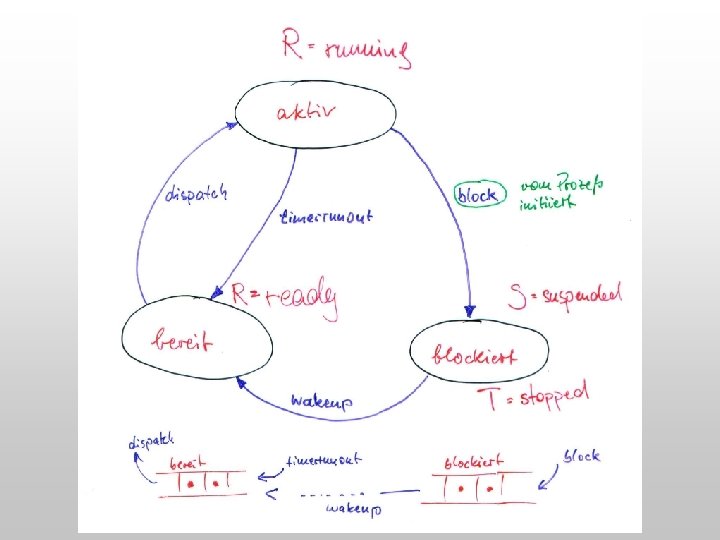 R = running
aktiv
dispatch
timerrunout
block
vom Prozeß
initiiert
R = ready
S = suspended
bereit
blockiert
T = stopped
wakeup
dispatch
bereit
timerrunout
blockiert
block
wakeup